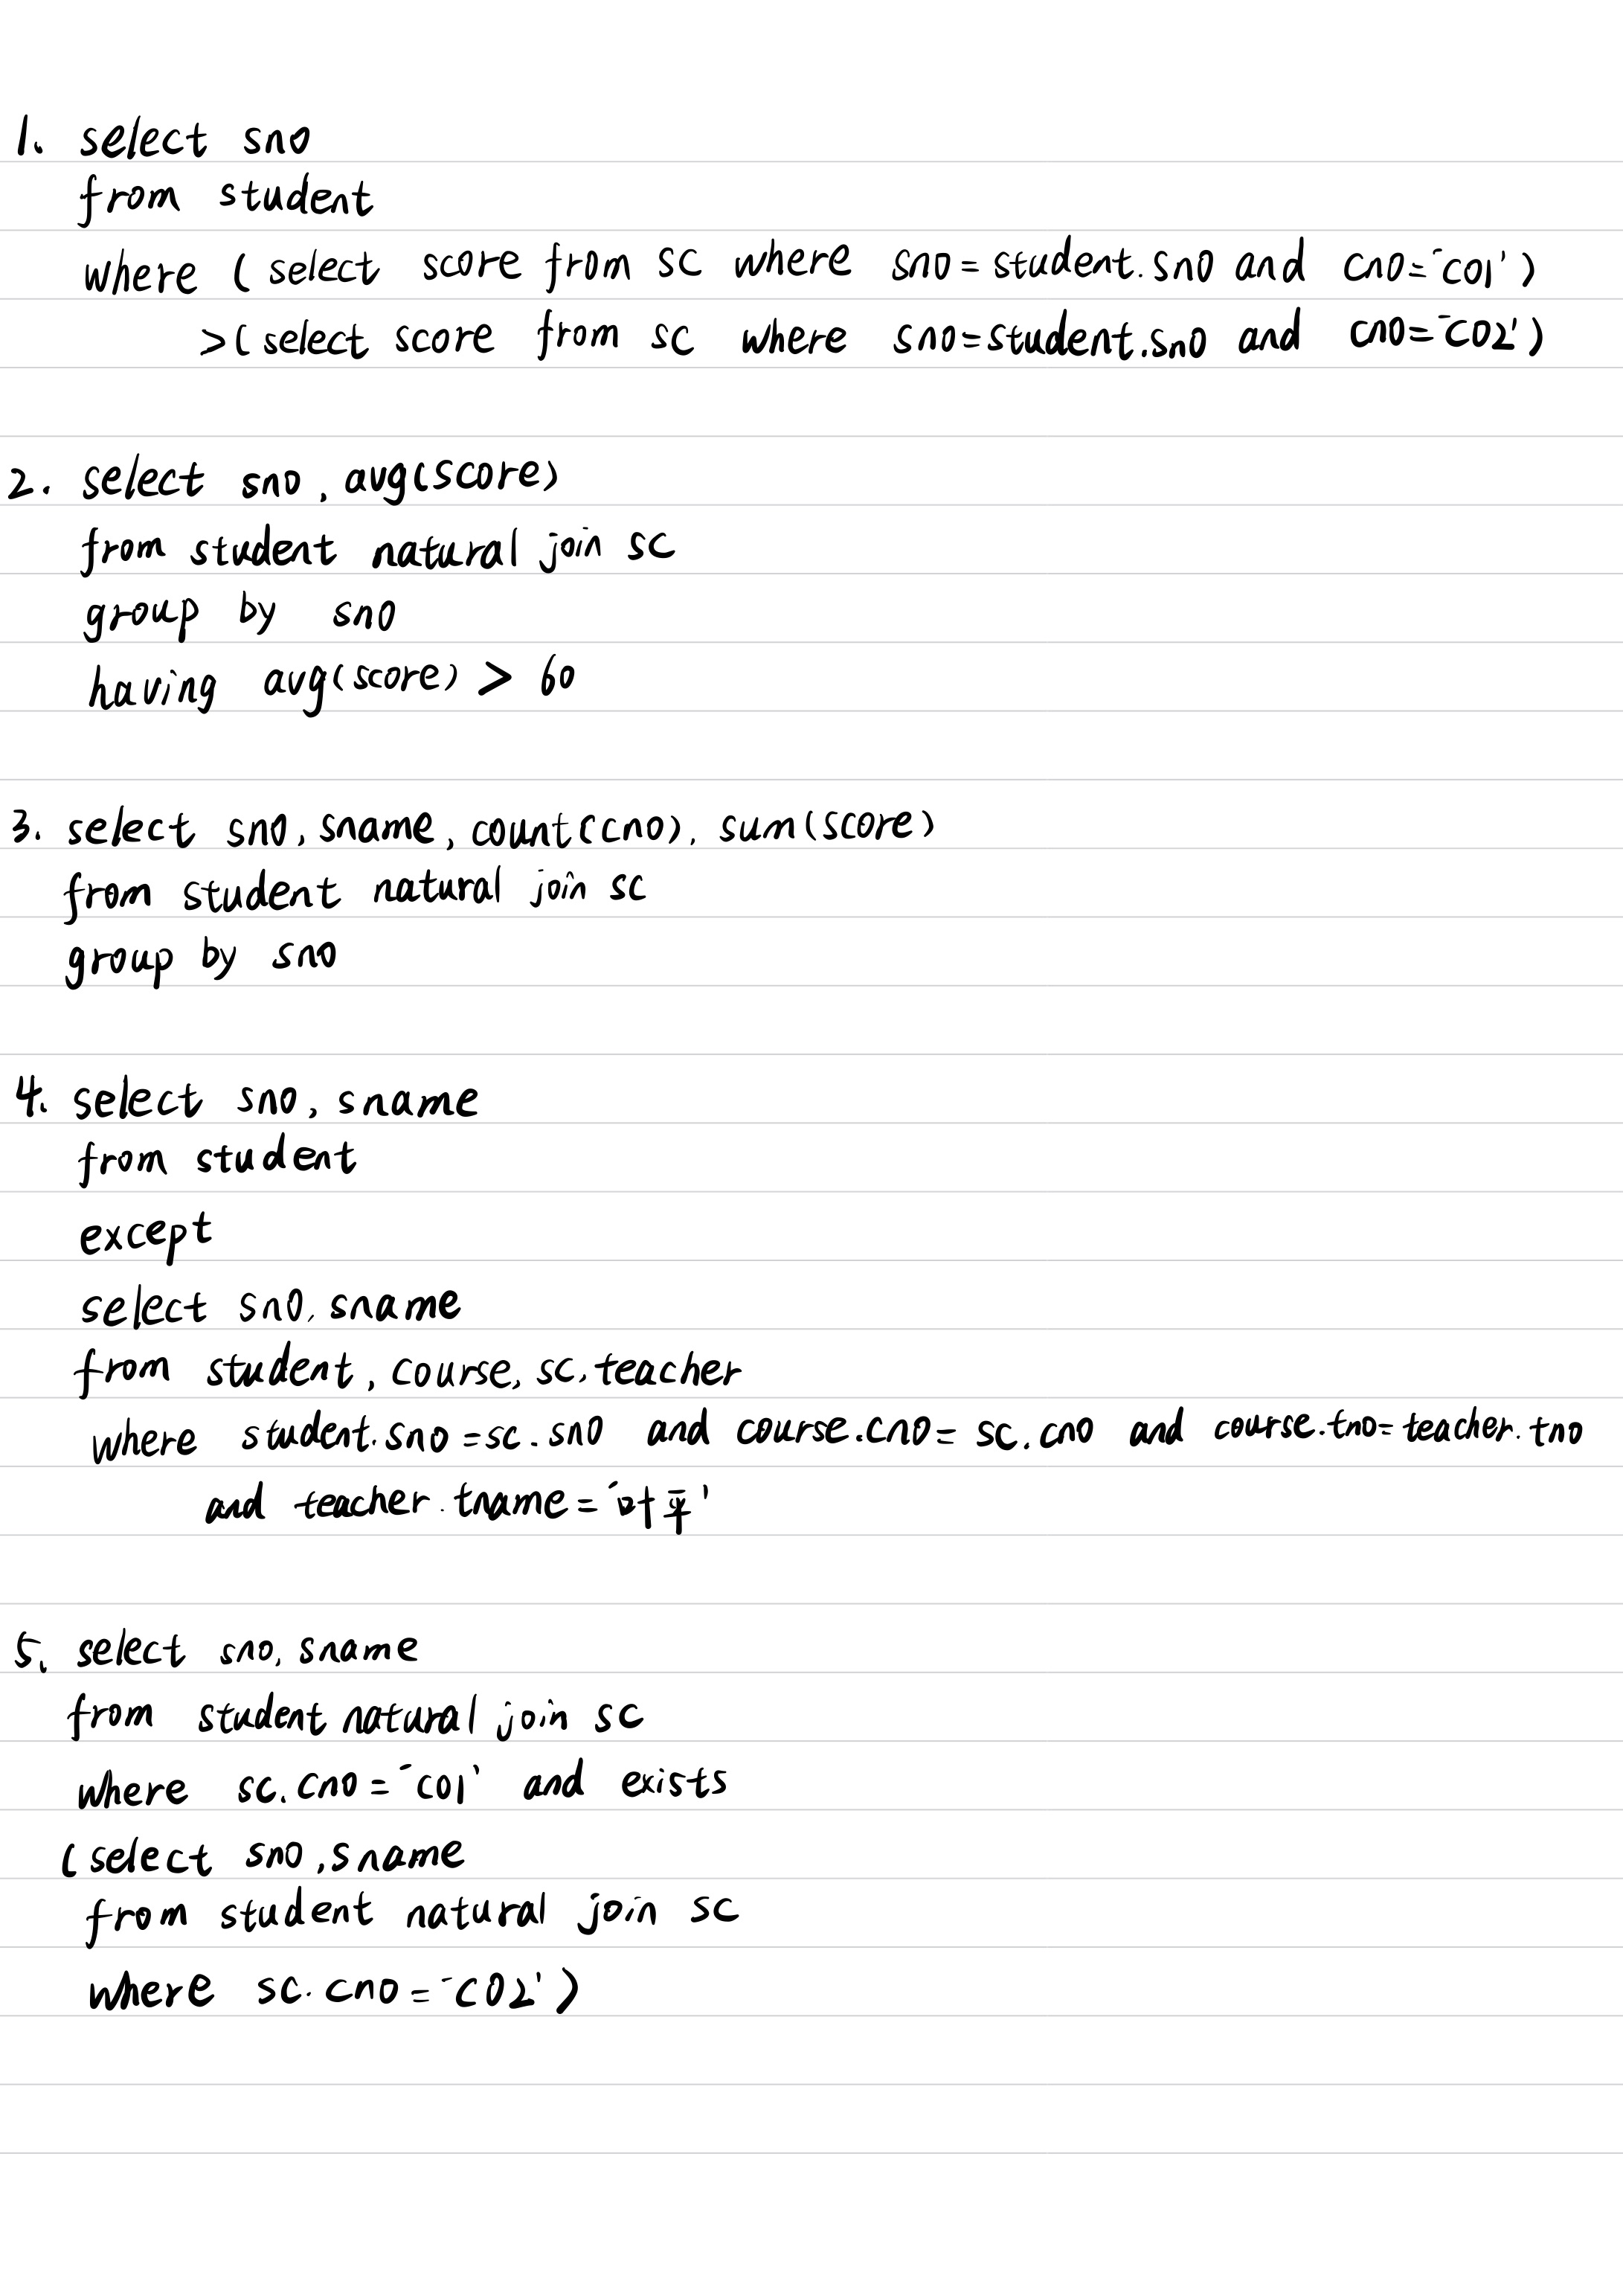 1. select sno
from student
where (select score from sc where sno=student.sno and cno='c01')
>(select score from sc where sno=student.sno and cno='c02')
2. select sno, avg(score)
from student natural join sc
group by sno
having avg(score) > 60
3. select sno, sname, count(cno), sum(score)
from student natural join sc
group by sno
4. select sno, sname
from student
except
select sno, sname
from student, course, sc, teacher
where student.sno=sc.sno and course.cno=sc.cno and course.tno=teacher.tno
and teacher.tname='叶平'
5. select sno, sname
from student natural join sc
where sc.cno='c01' and exists
(select sno, sname
from student natural join sc
where sc.cno='c02')